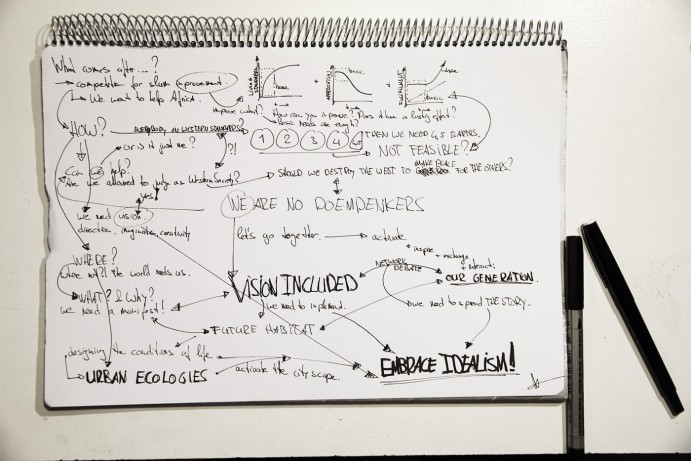 What comes after....?
→ competition for slum improvement.
↳ We want to help Africa.
improve what? How can you improve? Does it have a lasting effect?
basic needs are enough?
LIVING STANDARD
base
+
+
basic
HOW? → EVERYBODY ON WESTERN STANDARDS
1 2 3 4 THEN WE NEED 4,5 EARTHS.
→ or is it just me? ?!
NOT FEASIBLE?
Can we help?
Are we allowed to judge as Western Society? → SHOULD WE DESTROY THE WEST TO MAKE PLACE FOR THE OTHERS?
YES!
WE ARE NO DOEMDENKERS
We need vision.
direction, imagination, creativity
let's go together. → activate
inspire + exchange + interact:
WHERE?
where not?! the world needs us.
NETWORK DEBATE
OUR GENERATION.
VISION INCLUDED
WHAT? & Why?
we need a manifest!
we need to implement.
we need to spread THE STORY.
FUTURE HABITAT
designing the conditions of life
EMBRACE IDEALISM!
URBAN ECOLOGIES activate the cityscope.